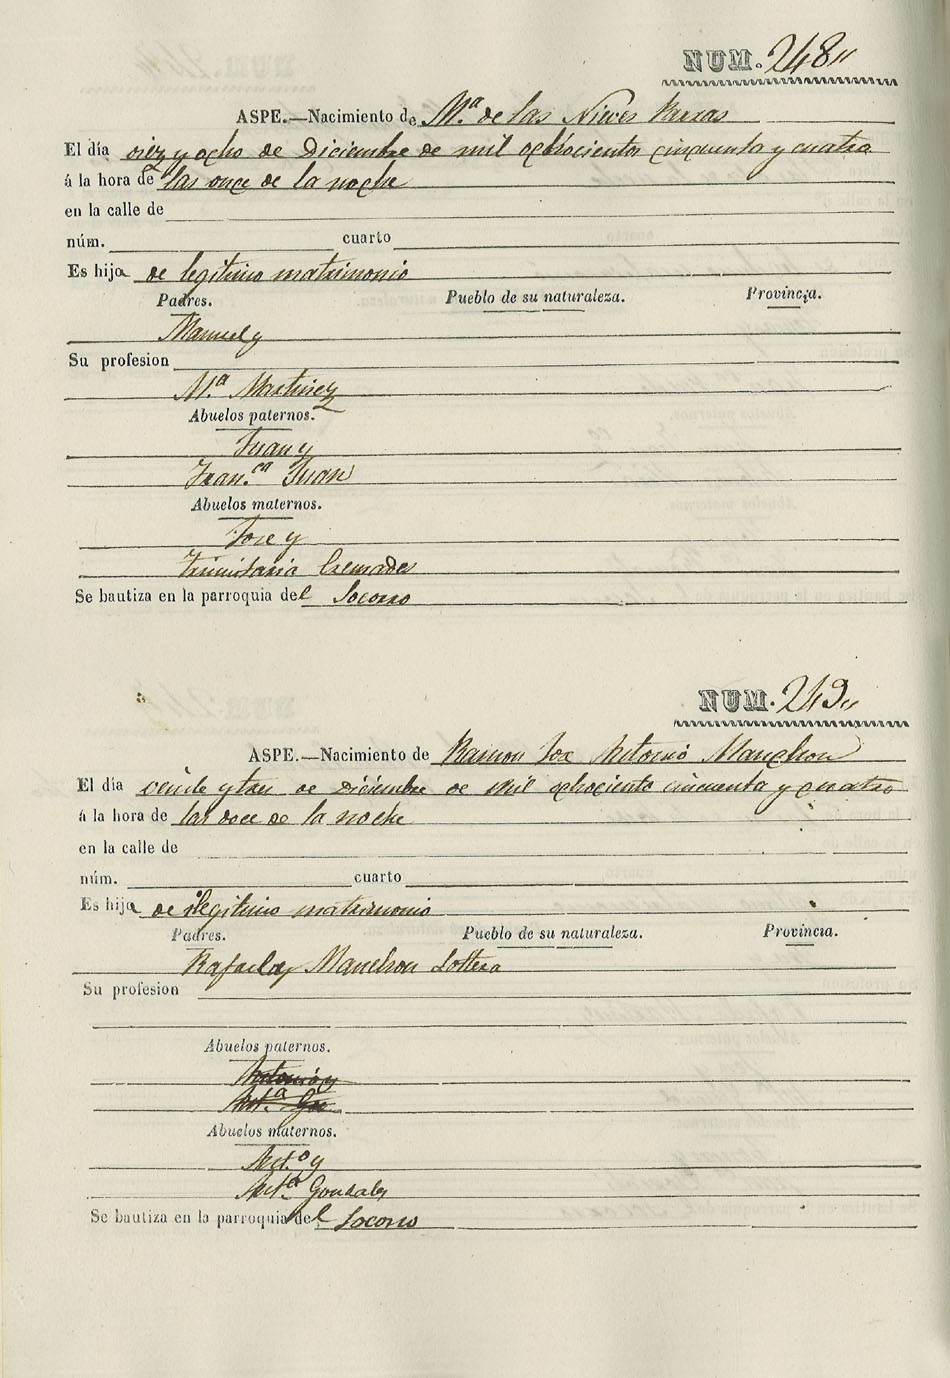 NUM. 248
ASPE.—Nacimiento de Mª de las Nieves Parras
El día diez y ocho de Diciembre de mil ochocientos cincuenta y cuatro
á la hora de las once de la noche
en la calle de
núm. cuarto
Es hija de legitimo matrimonio
Padres. Pueblo de su naturaleza. Provincia.
Manuel y
Su profesion
Mª Martinez
Abuelos paternos.
Juan y
Franca Juan
Abuelos maternos.
Jose y
Trinitaria Cremades
Se bautiza en la parroquia del Socorro
NUM. 249
ASPE.—Nacimiento de Ramon Jose Antonio Manchon
El día veinte y tres de Diciembre de mil ochociento cincuenta y cuatro
á la hora de las doce de la noche
en la calle de
núm. cuarto
Es hija de legitimo matrimonio
Padres. Pueblo de su naturaleza. Provincia.
Rafaela Manchon Soltera
Su profesion
Abuelos paternos.
Antonio y
Antª Gon
Abuelos maternos.
Antº y
Antª Gonzales
Se bautiza en la parroquia del Socorro